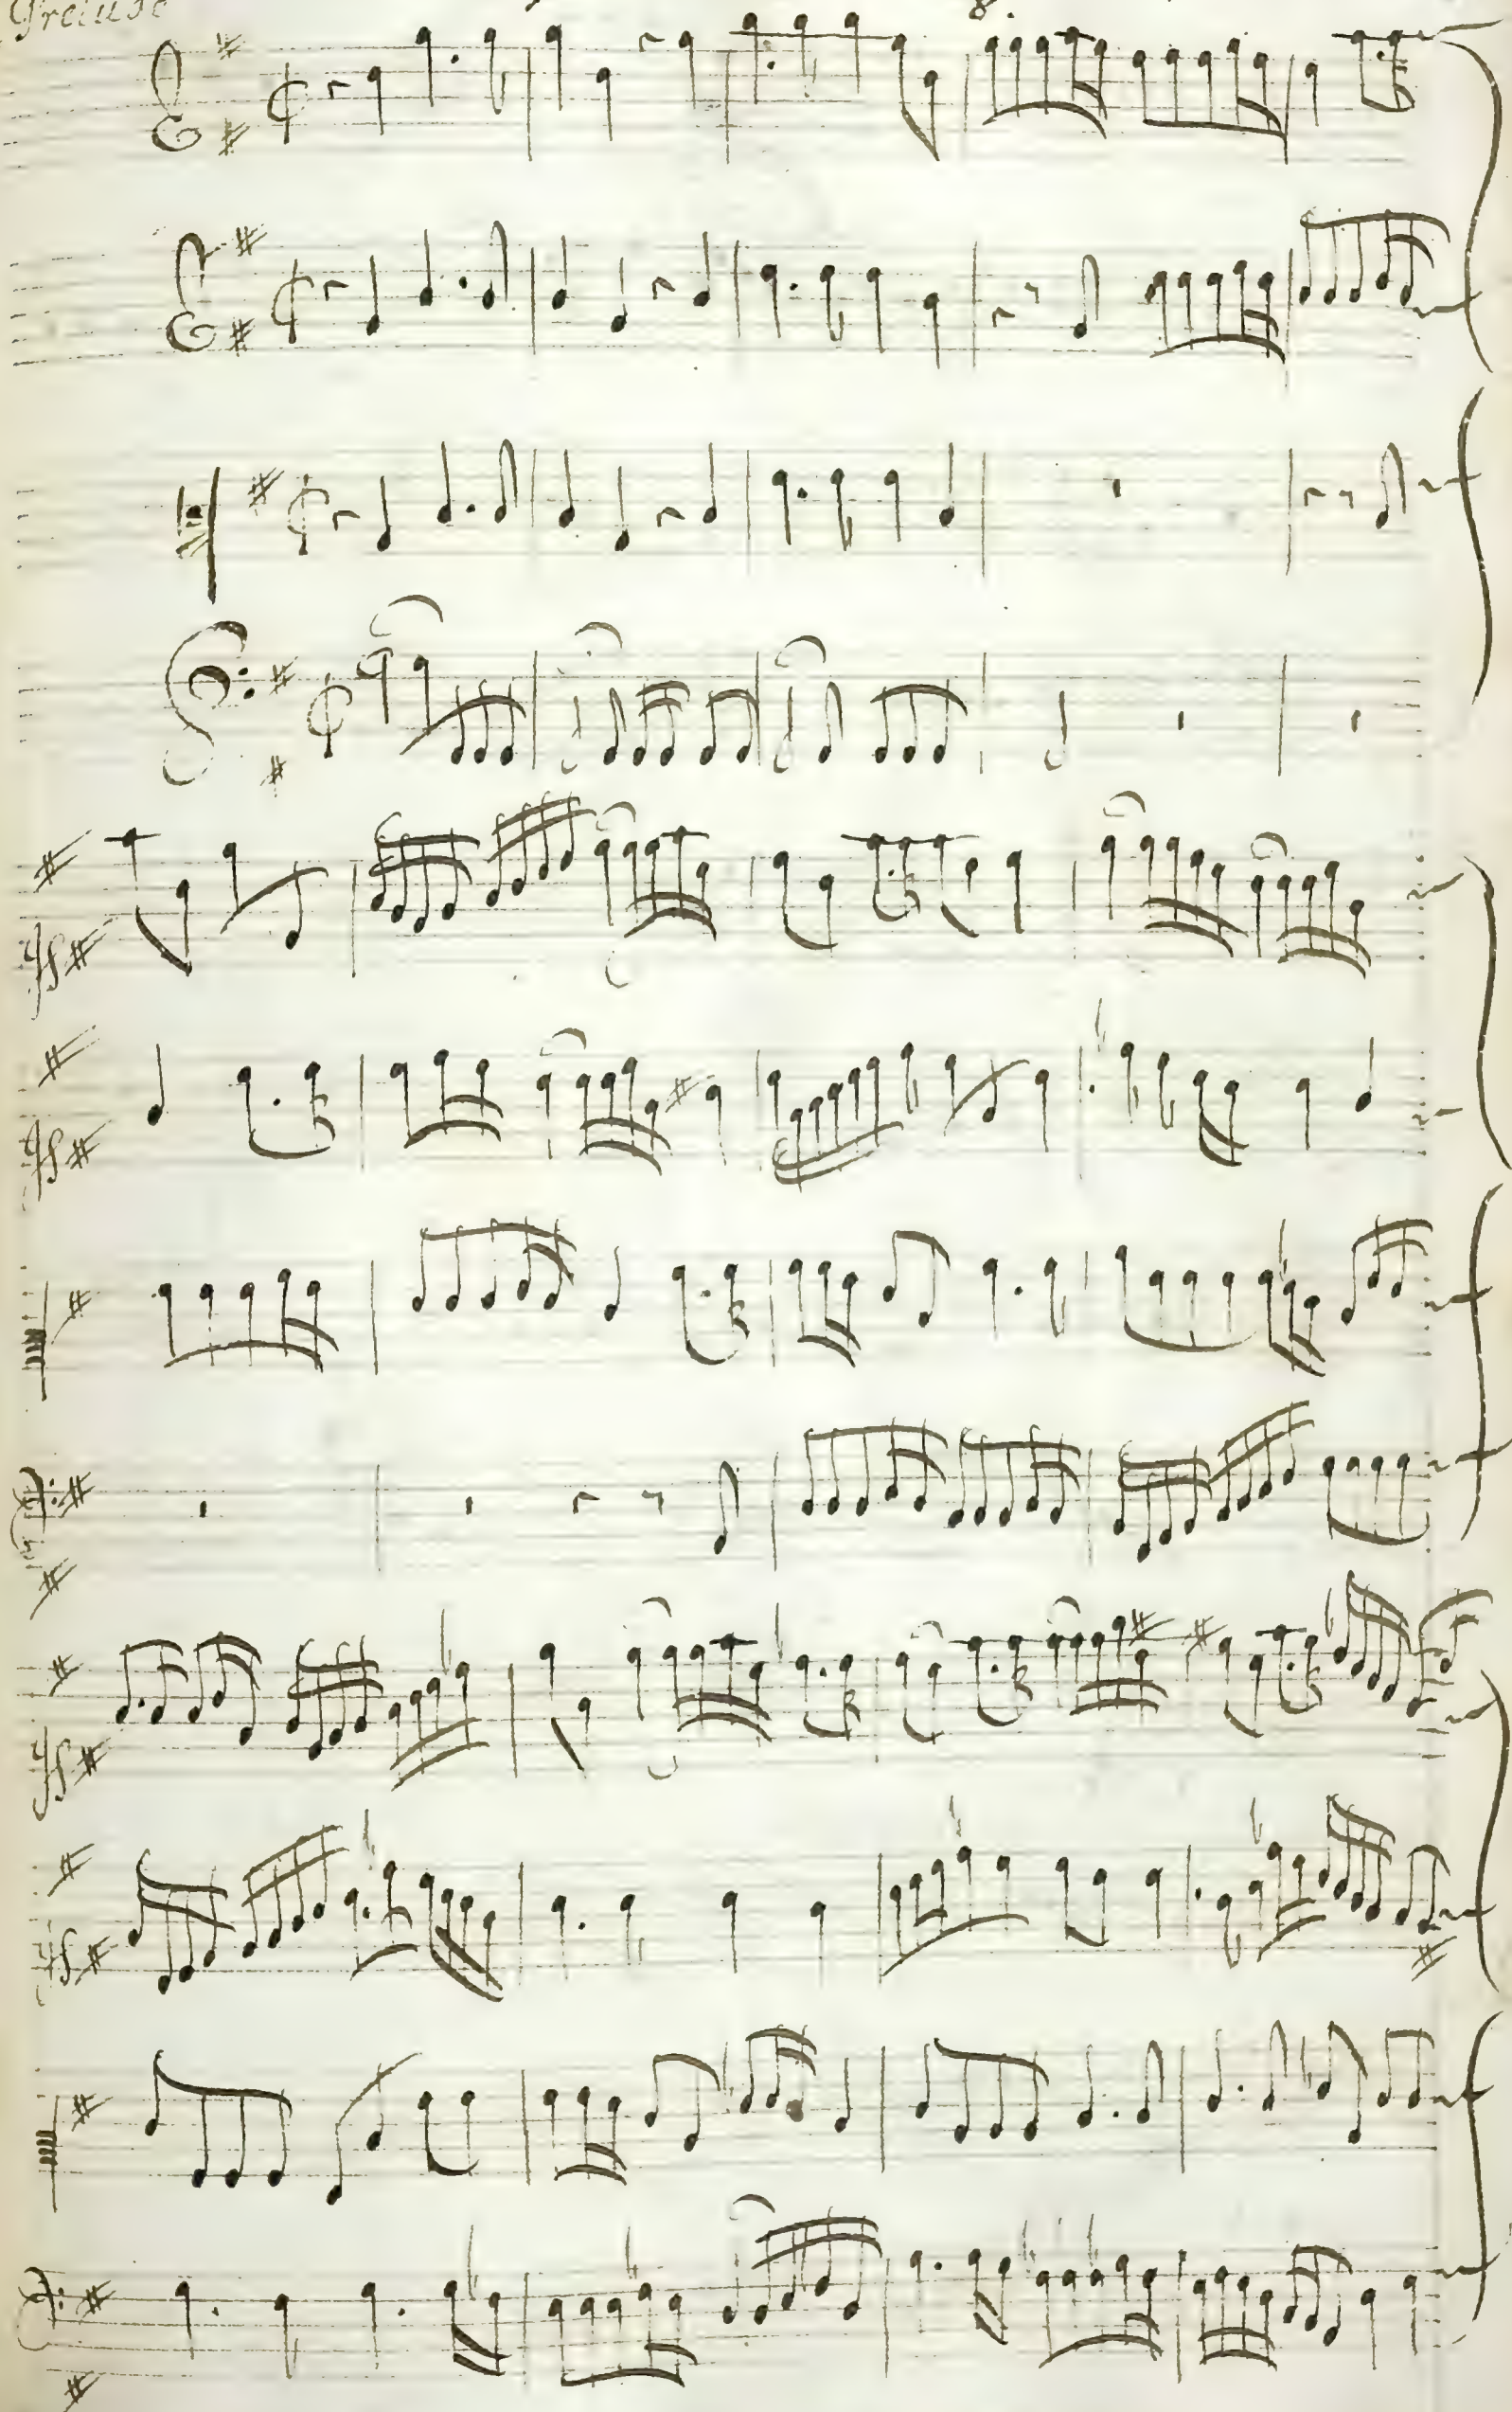 Prelude
8.